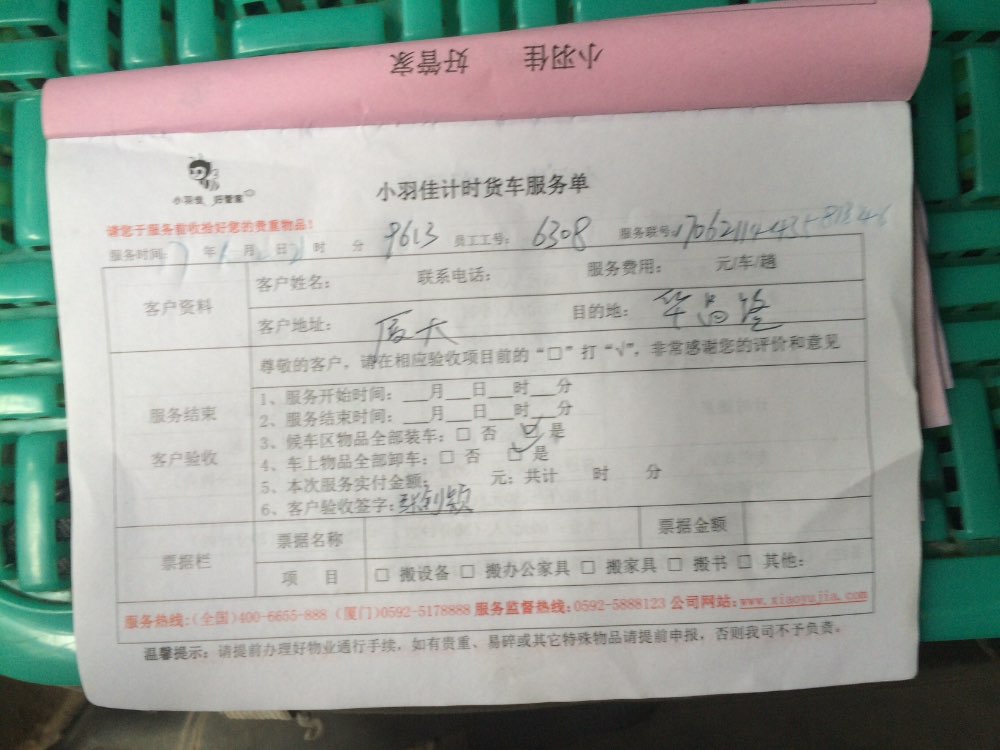 小羽佳 好管家
小羽佳 好管家
小羽佳计时货车服务单
请您于服务前收捡好您的贵重物品!
服务时间: 年 月 日 时 分 9613 员工工号: 6308 服务联号:
客户资料
客户姓名: 联系电话: 服务费用: 元/车/趟
客户地址: 厦大 目的地: 华昌隆
服务结束
客户验收
尊敬的客户,请在相应验收项目前的“□”打“√”,非常感谢您的评价和意见
1、服务开始时间:___月___日___时___分
2、服务结束时间:___月___日___时___分
3、候车区物品全部装车:□ 否 ☑ 是
4、车上物品全部卸车:□ 否 ☑ 是
5、本次服务实付金额: 元;共计 时 分
6、客户验收签字:
票据栏
票据名称 票据金额
项 目 □ 搬设备 □ 搬办公家具 □ 搬家具 □ 搬书 □ 其他:
服务热线:(全国)400-6655-888 (厦门)0592-5178888 服务监督热线:0592-5888123 公司网站:www.xiaoyujia.com
温馨提示:请提前办理好物业通行手续,如有贵重、易碎或其它特殊物品请提前申报,否则我司不予负责。